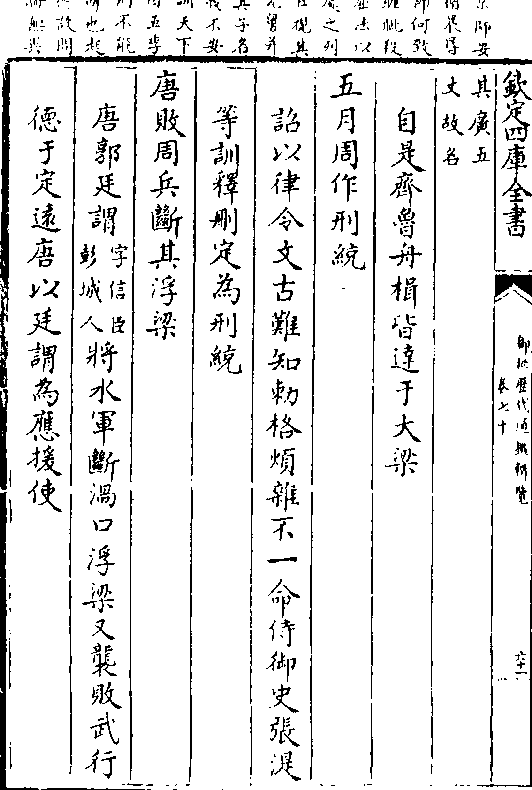 欽定四庫全書
御批歷代通鑑輯覽
卷七十
其廣五
丈故名
自是齊魯舟楫皆達于大梁
五月周作刑統
詔以律令文古難知勅格煩雜不一命侍御史張湜
等訓釋刪定為刑統
唐敗周兵斷其浮梁
唐郭廷謂字信臣彭城人將水軍斷渦口浮梁又襲敗武行
德于定遠唐以廷謂為應援使